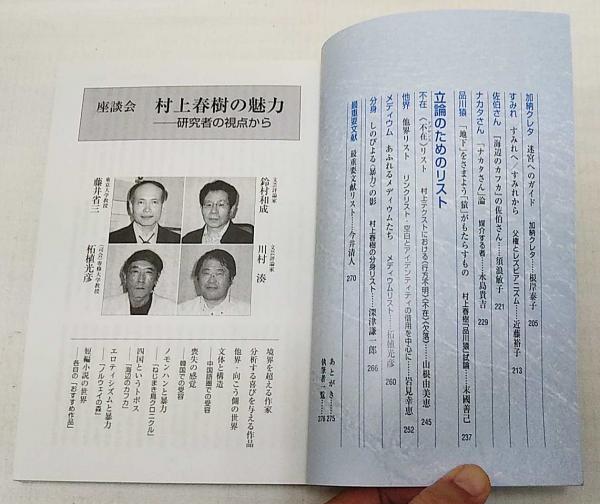 加納クレタ　迷宮へのガイド　加納クレタ……根岸泰子　205
すみれ　すみれへ／すみれから　父権とレズビアニズム……近藤裕子　213
佐伯さん　『海辺のカフカ』の佐伯さん……須浪敏子　221
ナカタさん　「ナカタさん」論　媒介する者……水島貴吉　229
品川猿　「地下」をさまよう「猿」がもたらすもの　村上春樹「品川猿」試論……末國善己　237
立論のためのリスト
不在　〈不在〉リスト　村上テクストにおける〈行方不明〉〈不在〉〈欠落〉……山根由美恵　245
他界　他界リスト　リンクリスト　空白とアイデンティティの借用を中心に……岩見幸恵　252
メディウム　あふれるメディウムたち　メディウムリスト……柘植光彦　260
分身　しのびよる〈暴力〉の影　村上春樹の分身リスト……深津謙一郎　266
最重要文献　最重要文献リスト……今井清人　270
あとがき……275
執筆者一覧……278
座談会　村上春樹の魅力
――研究者の視点から
文芸評論家
鈴村和成
東京大学教授
藤井省三
文芸評論家
川村　湊
（司会）専修大学教授
柘植光彦
境界を超える作家
分析する喜びを与える作品
他界・向こう側の世界
――中国語圏での受容
文体と構造
喪失の感覚
――韓国での受容
ノモンハンと暴力
――『ねじまき鳥クロニクル』
四国というトポス
――『海辺のカフカ』
エロティシズムと暴力
――『ノルウェイの森』
短編小説の世界
――各自の「おすすめ作品」